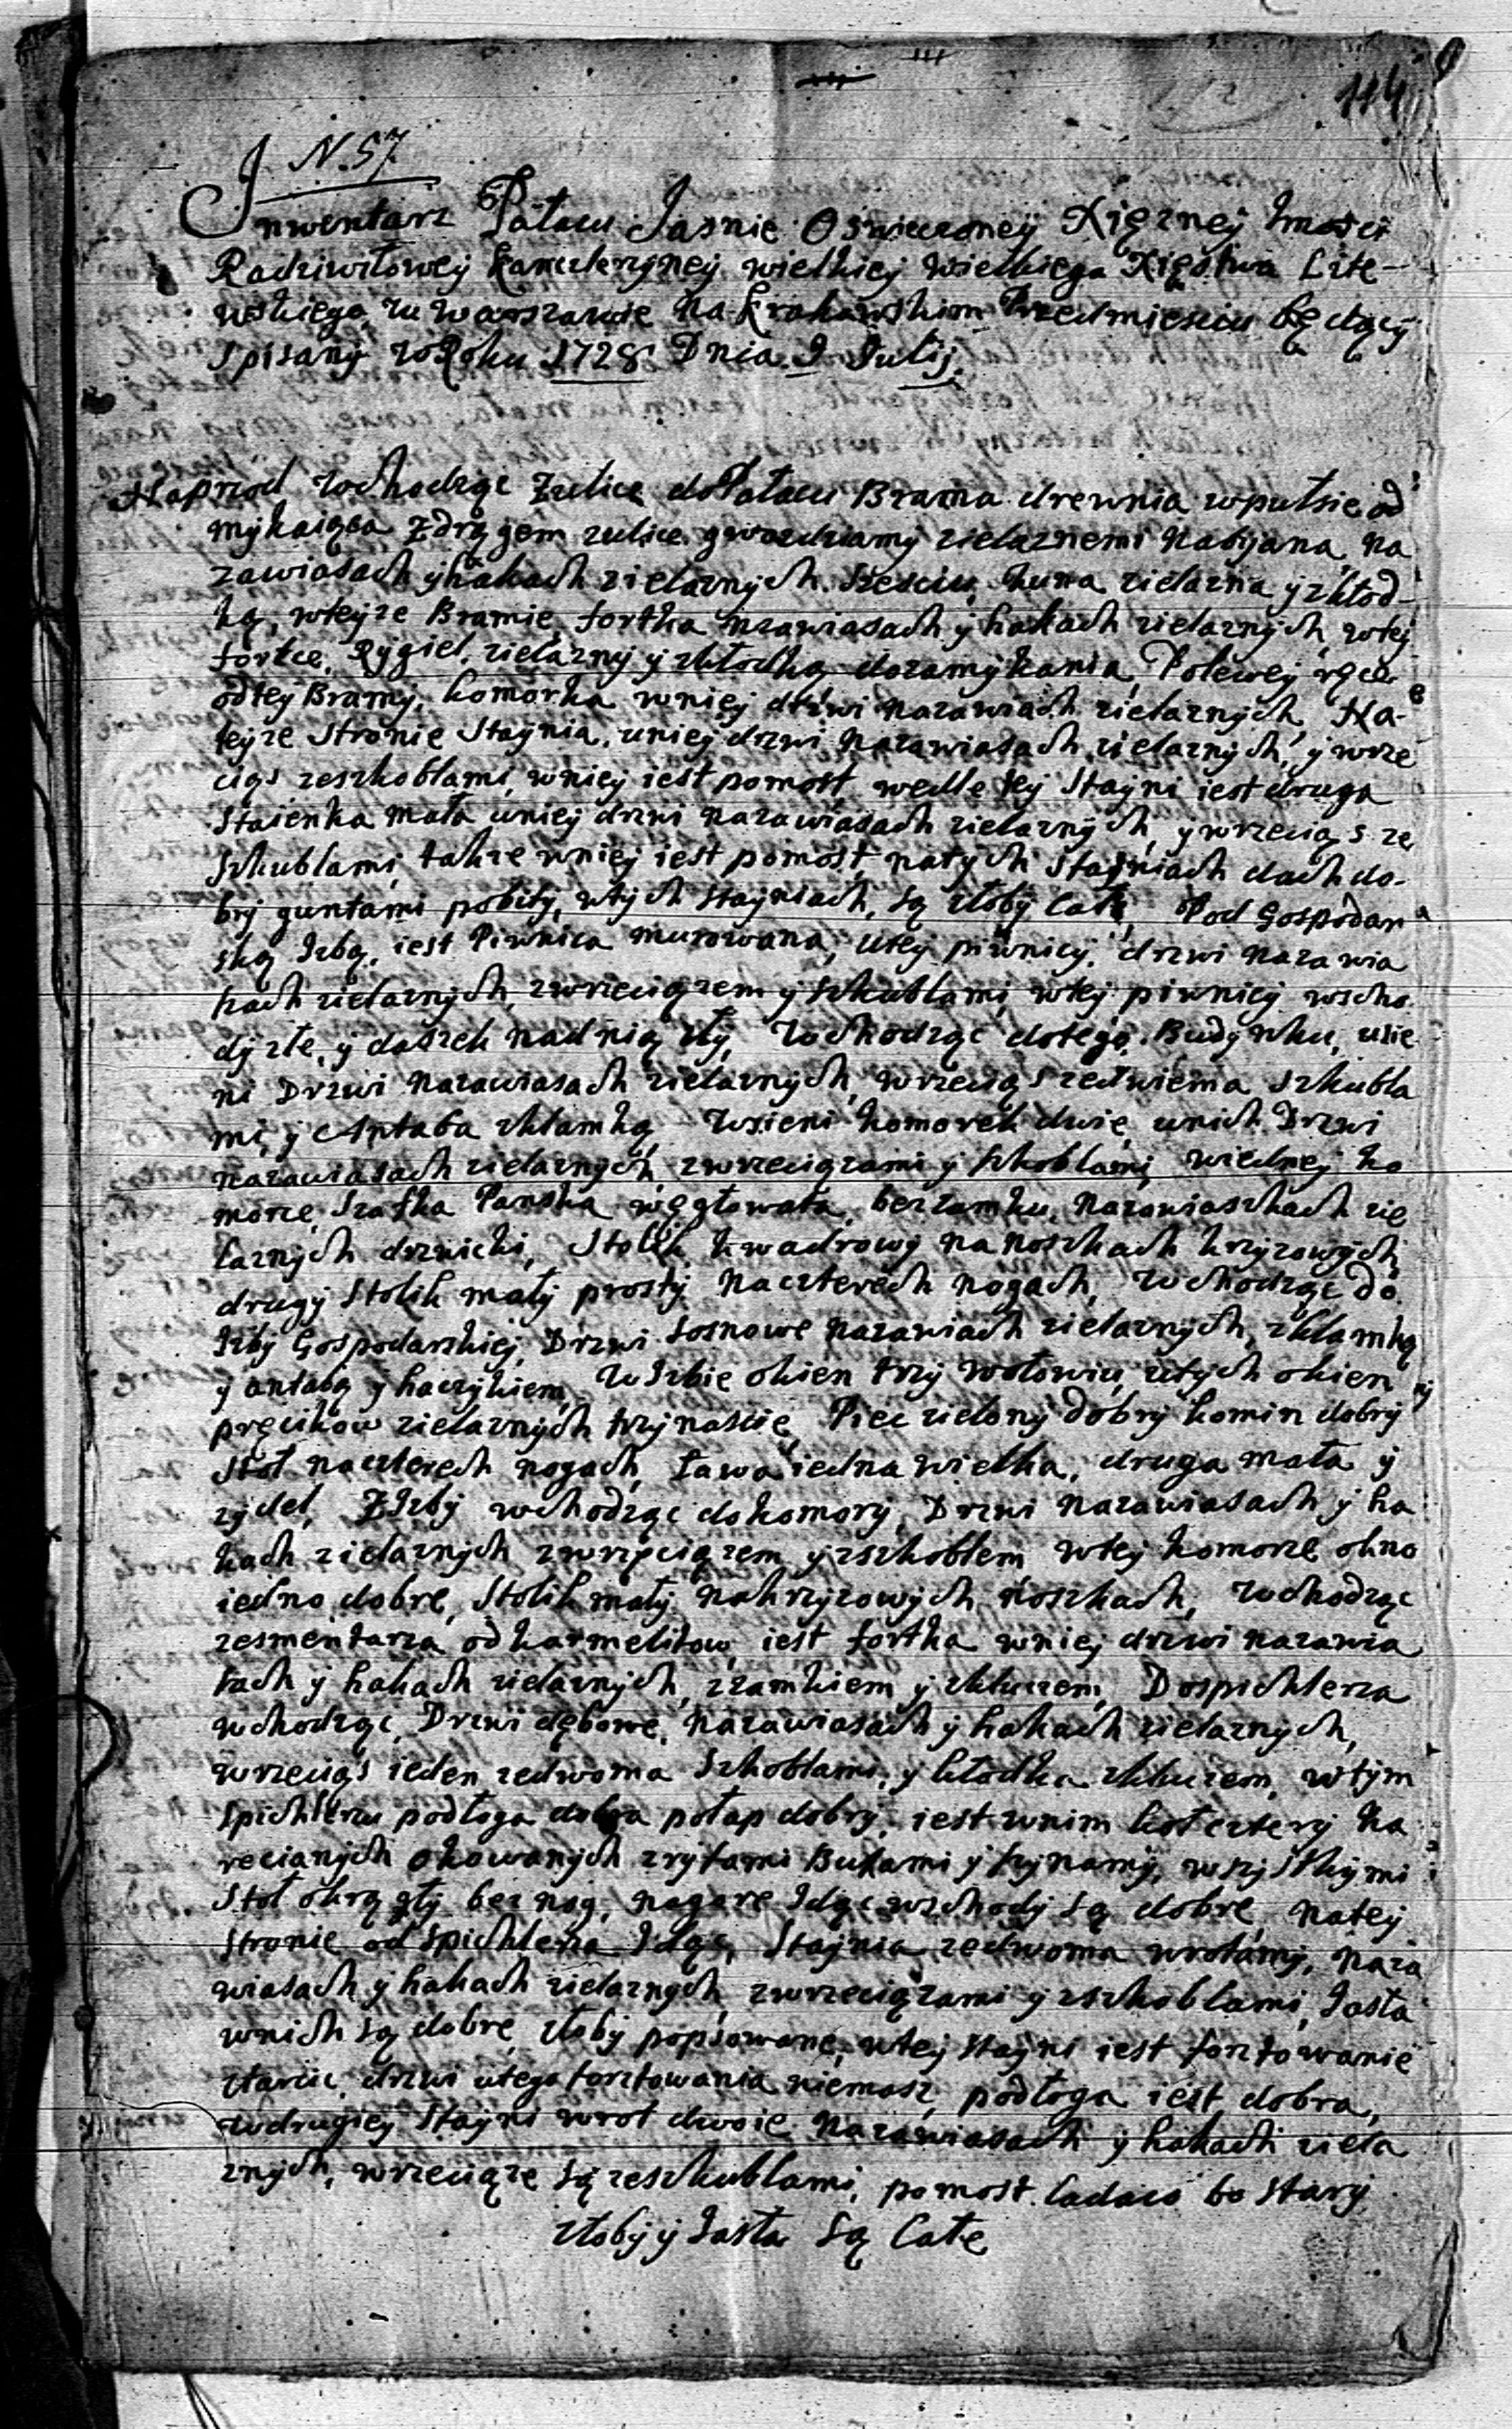 114
N. 57.
Inwentarz Pałacu Jasnie Oswieconey Xięzney Jmosci
Radziwiłowey Kanclerzyney wielkiey Wielkiego Xięstwa Lite-
wskiego, w Warszawie na Krakowskim Przedmiesciu będący
Spisany w Roku 1728 Dnia 9 Julij.
Naprzod, Wchodząc Zulice do Pałacu Brama drewnia wpułsie od
mykaiąca Zdrągem zulice gwozdziamy zielaznemi Nabijana, na
zawiasach y hakach zielaznych Szesciu, kuna zielazna y zkłod-
ką, wteyze Bramie, fortka nzawiasach y hakach zielaznych, wtey
fortce, Rygiel, zielazny y zkłodką dozamykania, Polewey ręce
odtey Bramy, komorka wniey drzwi nazawiach zielaznych, Na-
teyze Stronie Staynia, uniey drzwi nazawiasach zielaznych, y wrze
ciąs zeszkoblami, wniey iest pomost, wedle tey Stayni iest druga
Staienka mała uniey drzwi nazawiasach zielaznych, y wrzeciąs ze
szkublami, takze wniey iest pomost, natych Stayniach dach do-
bry guntami pobity, wtych stayniach, są złoby całe, Pod Gospodar
ską Izbą, iest Piwnica murowana, utey piwnicy, drzwi nazawia
sach zielaznych, zwrzeciązem y szkublami, wtey piwnicy wscho
dy złe, y daszek nadnią zły, Wchodząc dotego Budynku, usie
ni Drzwi nazawiasach zielaznych, wrzeciąs zedwiema szkubla
mi, y Antaba zklamką, Wsieni komorek dwie, unich Drzwi
nazawiasach zielaznych, zwrzeciązami y szkoblami, wiedney ko
morze, Szafka Panska węgłowata, bez zamku, nazawiaszkach zie
laznych drzwiczki, Stolik kwadrowy na noszkach krzyzowych,
drugy Stolik mały prosty naczterech nogach, Wchodząc do
Izby Gospodarskiey, Drzwi sosnowe nazawiach zielaznych, zklamką
y antabą y haczykiem, W Izbie okien trzy wołowiu, utych okien
pręcikow zielaznych trzynascie, Piec zielony dobry komin dobry
Stoł naczterech nogach, Ława iedna wielka, druga mała y
zydel, Z Izby wchodząc dokomory, Drzwi nazawiasach y ha
kach zielaznych zwrzeciązem y zszkoblem wtey komorze okno
iedno dobre, Stolik mały nakrzyzowych noszkach, Wchodząc
zesmentarza od karmelitow, iest fortka wniey drzwi nazawia
sach y hakach zielaznych, zzamkiem y zkluczem, Dospichlerza
wchodząc, Drzwi dębowe, nazawiasach y hakach zielaznych,
wrzeciąs ieden zedwoma szkoblami, y kłodka zkluczem, wtym
spichlerzu podłoga dobra połap dobry, iest wnim koł cztery ka
recianych okowanych zrytami Buxami y szynamy, wszystkymi
Stoł okrągły bez nog, nagore Idąc wschody są dobre, natey
Stronie od Spichlerza Idąc, Staynia zedwoma wrotamy, naza
wiasach y hakach zielaznych, zwrzeciązami y zszkoblami, Jasła
wnich są dobre, złoby popsowane, wtey stayni iest forsztowanie
ztarcic, drzwi utego forsztowania niemasz, podłoga iest dobra,
wdrugiey Stayni wrot dwoie nazawiasach y hakach ziela
znych, wrzeciąze są zeszkublami, pomost ladaco bo stary
złoby y Jasła są całe